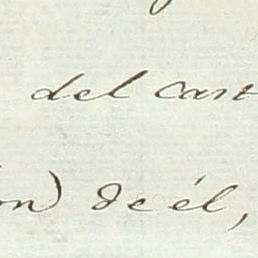 del cast
on) de él,